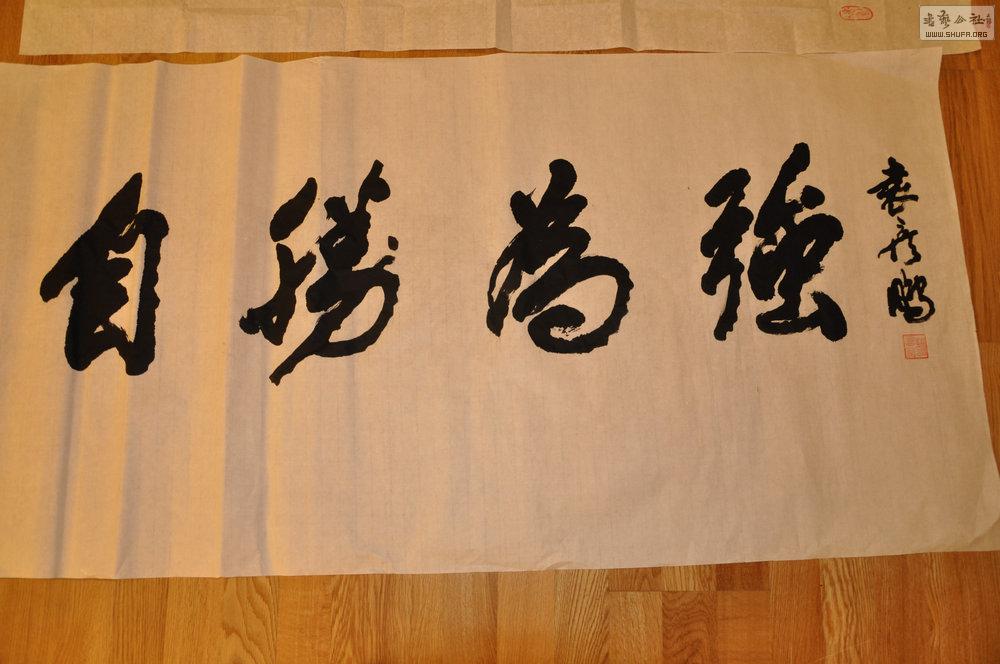 自勝為強
袁彥鵬
書藝公社
WWW.SHUFA.ORG